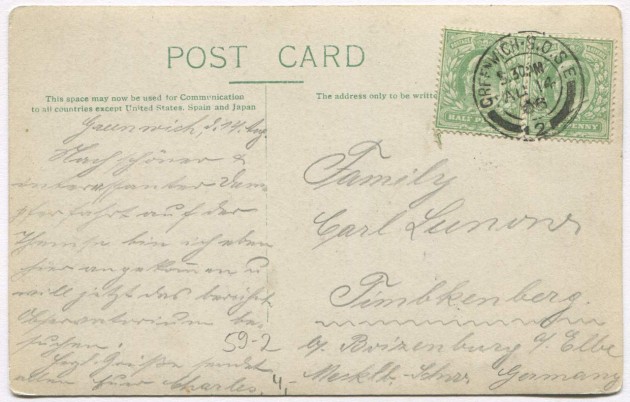 POST CARD
This space may now be used for Communication
to all countries except United States, Spain and Japan
The address only to be writte
GREENWICH.B.O.S.E
AU 14
12
HALF PENNY
Greenwich, d. 14. Aug
Nach schöner &
interessanter Dam-
pferfahrt auf der
Themse bin ich eben
hier angekommen u
will jetzt das berühmte
Observatorium be-
suchen.
Herzl. Grüße sendet
allen Euer Charles.
59-2
4,-
Family
Carl
Timbkenberg.
b/ Boizenburg a/ Elbe
Mecklb. Schwer Germany